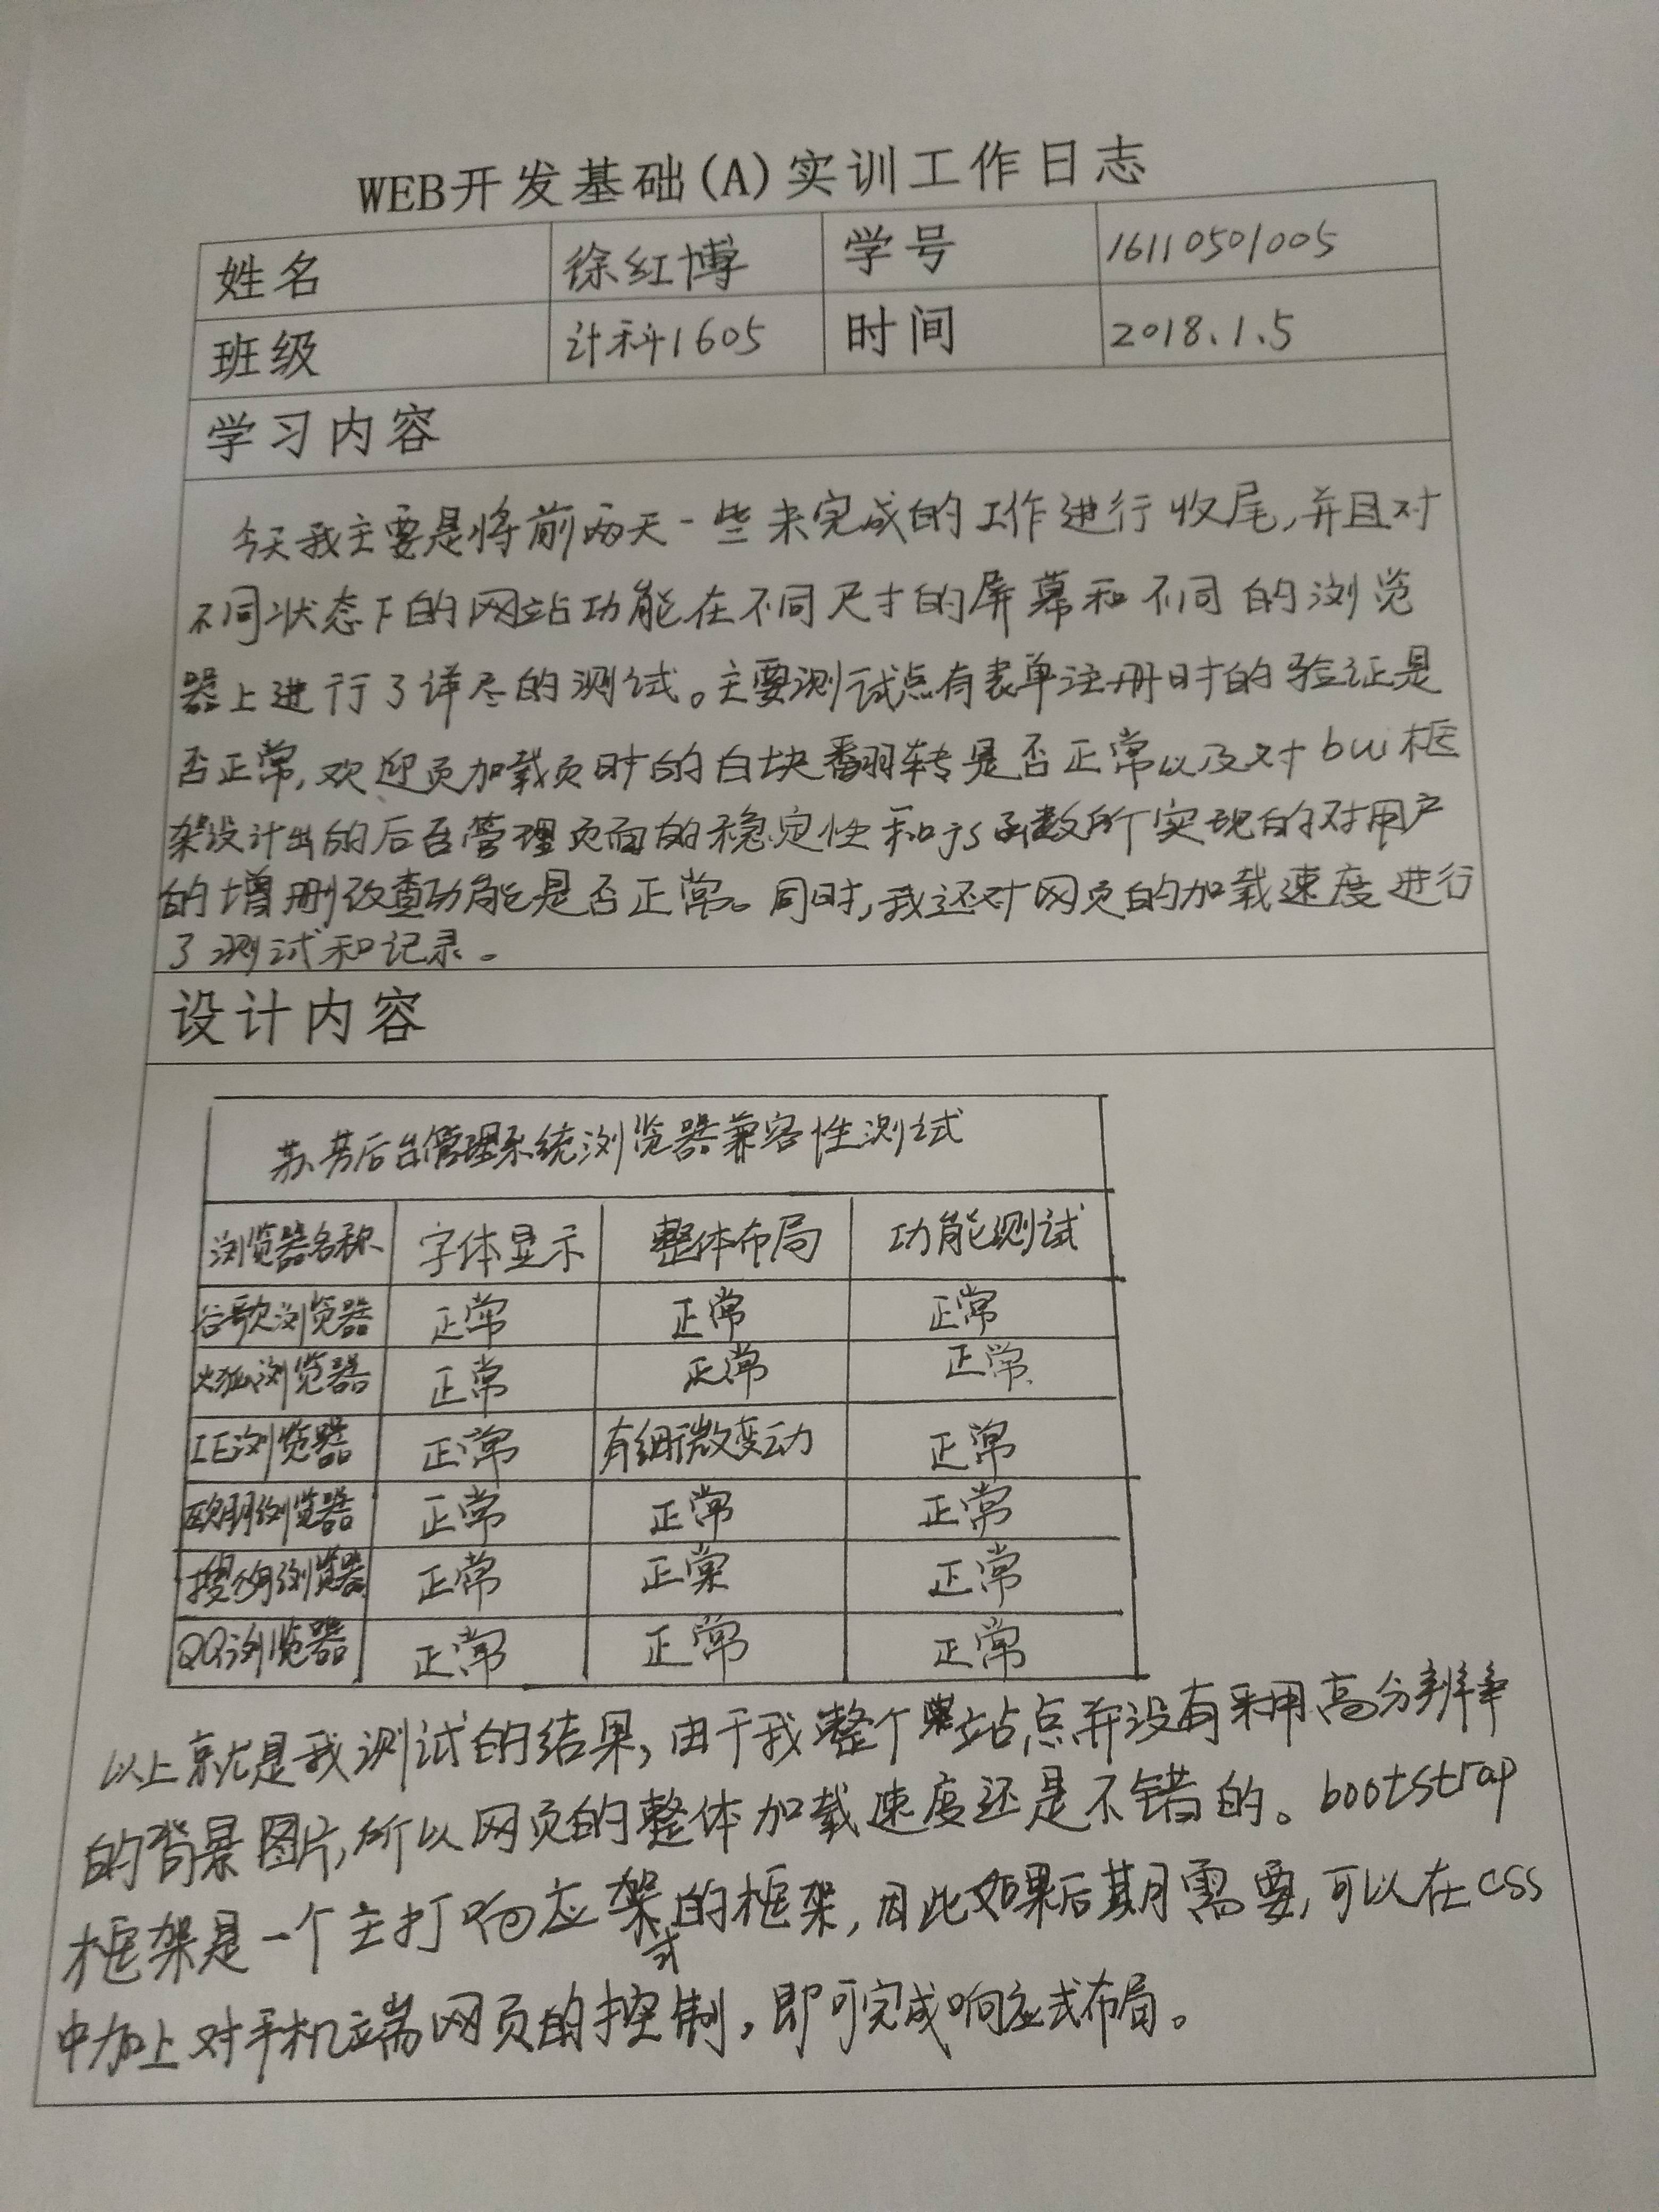 WEB开发基础(A)实训工作日志
姓名 徐红博 学号 16110501005
班级 计科1605 时间 2018.1.5
学习内容
今天我主要是将前两天一些未完成的工作进行收尾,并且对
不同状态下的网站功能在不同尺寸的屏幕和不同的浏览
器上进行了详尽的测试。主要测试点有表单注册时的验证是
否正常,欢迎页加载页时的白块翻转是否正常以及对bui框
架设计出的后台管理页面的稳定性和js函数所实现的对用户
的增删改查功能是否正常。同时,我还对网页的加载速度进行
了测试和记录。
设计内容
后台管理系统浏览器兼容性测试
浏览器名称 字体显示 整体布局 功能测试
谷歌浏览器 正常 正常 正常
火狐浏览器 正常 正常 正常
IE浏览器 正常 有细微变动 正常
欧朋浏览器 正常 正常 正常
搜狗浏览器 正常 正常 正常
QQ浏览器 正常 正常 正常
以上就是我测试的结果,由于我整个站点并没有采用高分辨率
的背景图片,所以网页的整体加载速度还是不错的。bootstrap
框架是一个主打响应式的框架,因此如果后期需要,可以在css
中加上对手机端网页的控制,即可完成响应式布局。